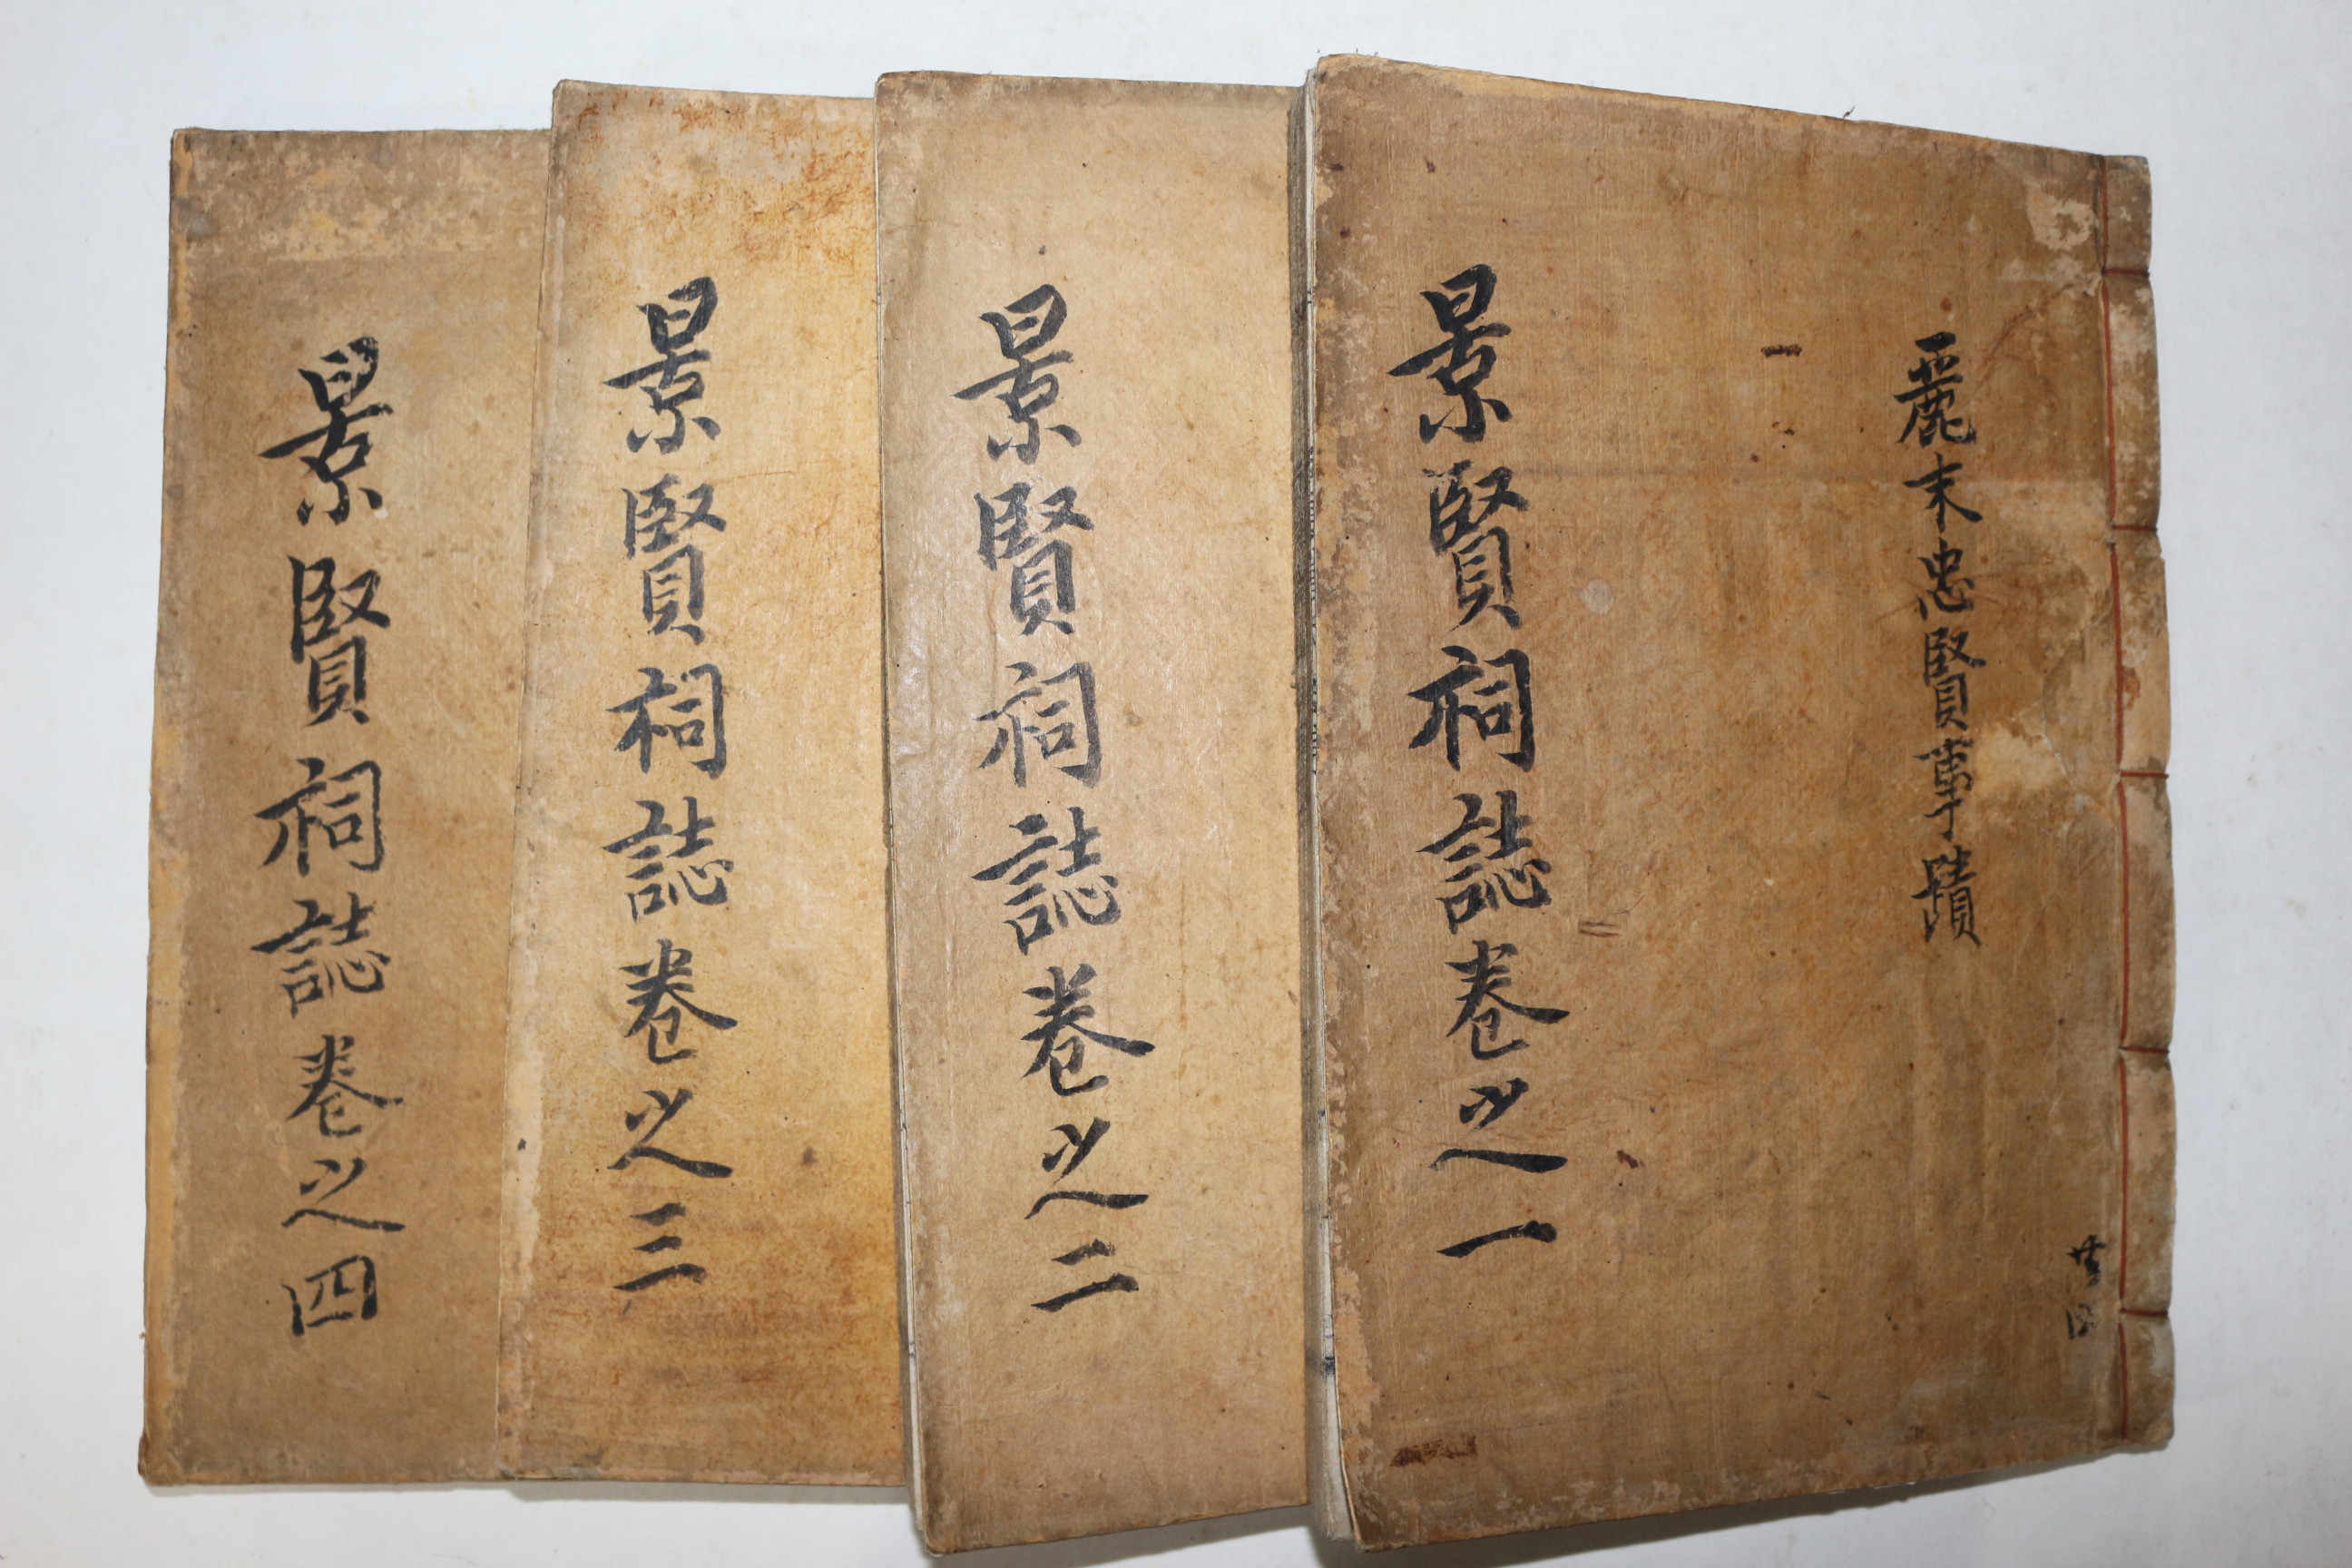 麗末忠賢事蹟
景賢祠誌卷之一
景賢祠誌卷之二
景賢祠誌卷之三
景賢祠誌卷之四